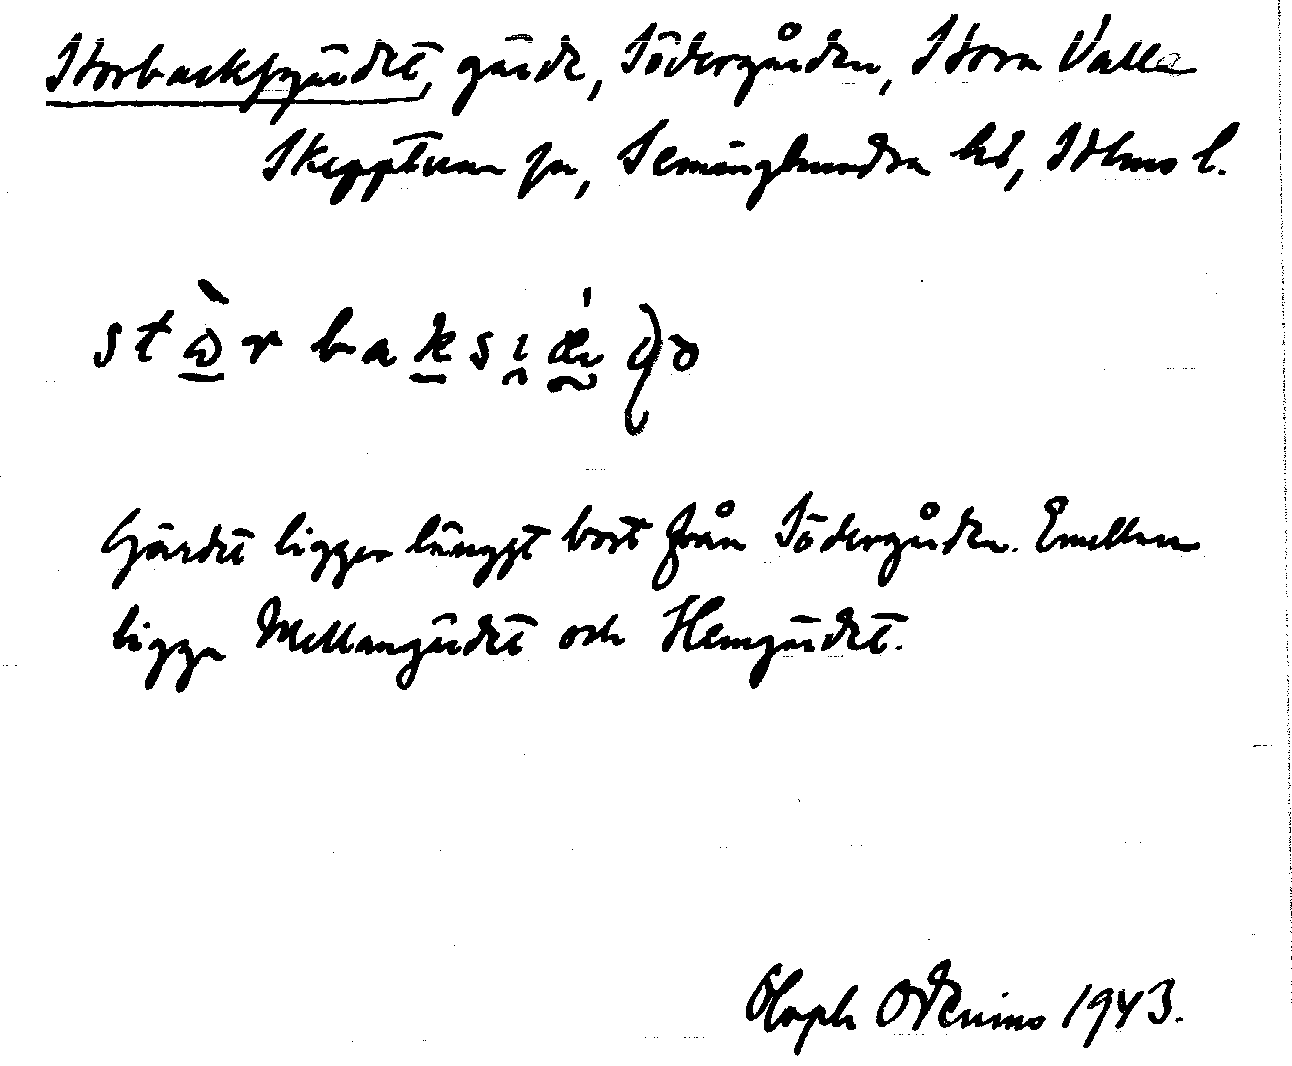 Storbacksgärdet, gärde, Södergården, Stora Valla
Skepptuna sn, Seminghundra hd, Sthms l.
Gärdet ligger längst bort från Södergården. Emellan
ligga Mellangärdet och Hemgärdet.
Oloph Odenius 1943.